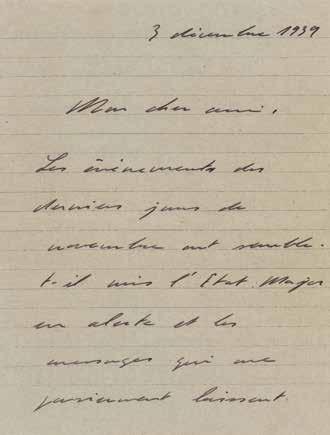 3 décembre 1939
Mon cher ami,
Les événements des
derniers jours de
novembre ont semble-
t-il mis l'Etat-Major
en alerte et les
messages qui me
parviennent laissent